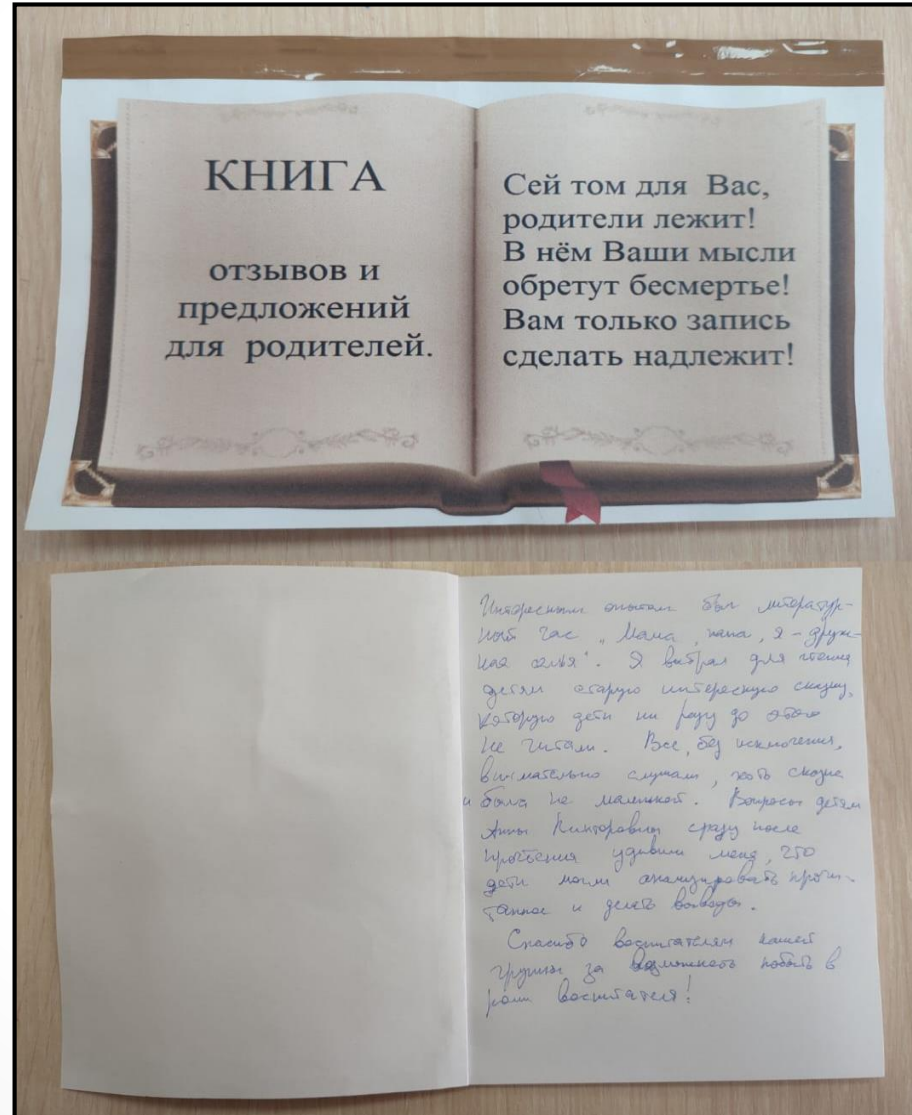 КНИГА
отзывов и
предложений
для родителей.
Сей том для Вас,
родители лежит!
В нём Ваши мысли
обретут бесмертье!
Вам только запись
сделать надлежит!
Интересным опытом был литератур-
ный час „Мама, папа, я – друж-
ная семья". Я выбрал для чтения
детям старую интересную сказку,
которую дети ни разу до этого
не читали. Все, без исключения,
внимательно слушали, хоть сказка
и была не маленькой. Вопросы детям
Анны сразу после
прочтения удивили меня, что
дети могли анализировать прочи-
танное и делать выводы.
Спасибо воспитателям нашей
группы за возможность побыть в
роли воспитателя!